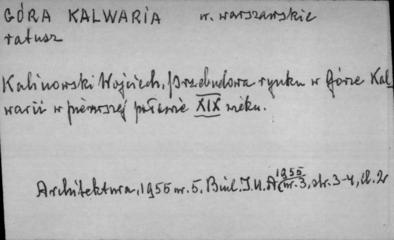 GÓRA KALWARIA w. warszawskie
ratusz
Kalinowski Wojciech, Przebudowa rynku w Górze Kal
warii w pierwszej połowie XIX wieku.
1955
Architektura, 1955 nr. 5. Biul. I.U.A. nr. 3, str. 3-4, il. 2